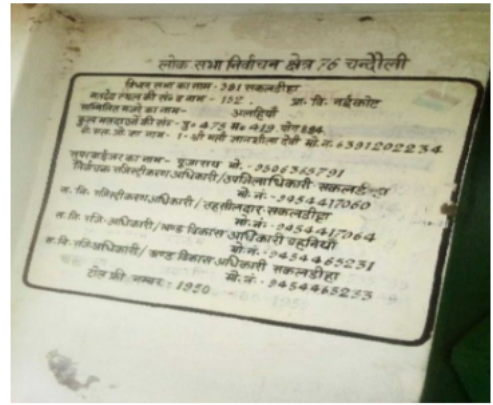 लोक सभा निर्वाचन क्षेत्र 76 चन्दौली
विधान सभा का नाम - 381 सकलडीहा
मतदेय स्थल की सं० व नाम - 152 प्रा. वि. नईकोट
सम्मिलित मजरे का नाम - अलहियाँ
कुल मतदाताओं की सं० - पु० 475 म० 419 योग 894
बी. एल. ओ का नाम - 1- श्री मती ज्ञानशीला देवी मो. न. 6391202234
सुपरवाईजर का नाम - पूजा राय मो. - 9506365791
निर्वाचक रजिस्ट्रीकरण अधिकारी/उपजिलाधिकारी सकलडीहा
मो. नं - 9454417060
स. नि. रजिस्ट्रीकरण अधिकारी / तहसीलदार सकलडीहा
मो. नं - 9454417064
स. नि. रजि. अधिकारी/खण्ड विकास अधिकारी
मो. नं - 9454465231
स. नि. रजि अधिकारी/ खण्ड विकास अधिकारी सकलडीहा
मो. नं - 9454465233
टोल फ्री नम्बर : 1950